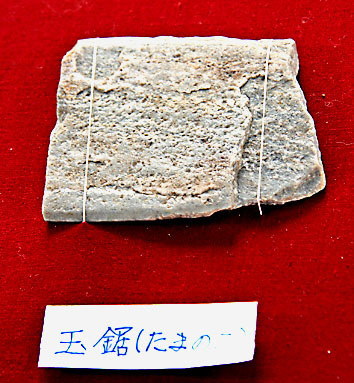 玉鋸(たまのこ)